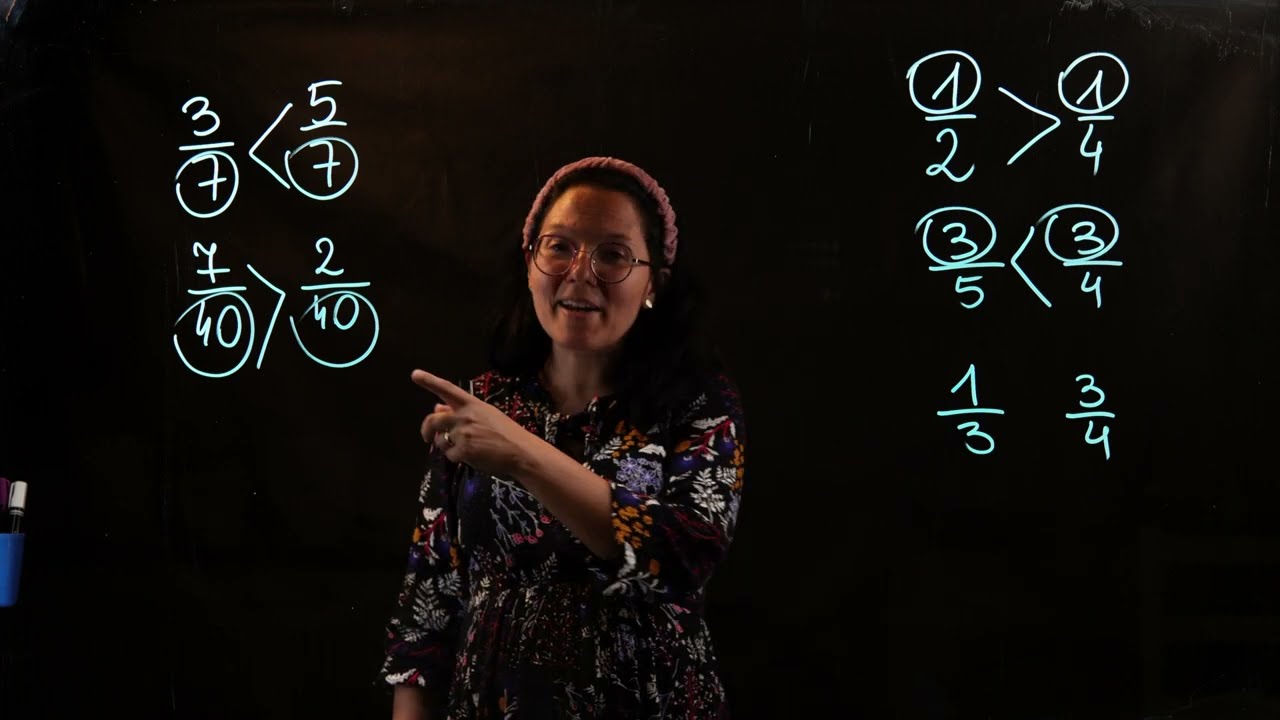 3/7 < 5/7
7/40 > 2/40
1/2 > 1/4
3/5 < 3/4
1/3 3/4